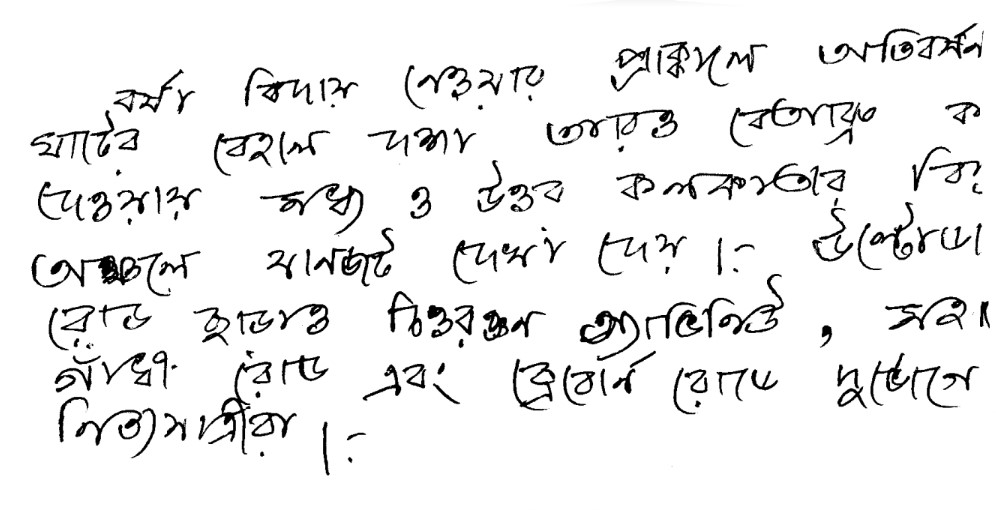 বর্ষা বিদায় নেওয়ার প্রাক্কালে অতিবর্ষন
ঘাটের বেহাল দশা আরও বেআব্রু ক
দেওয়ায় মধ্য ও উত্তর কলকাতার বি
অঞ্চলে যানজট দেখা দেয়।
রোড ছাড়াও চিত্তরঞ্জন অ্যাভিনিউ, মহা
গাঁধী রোড এবং ব্রেবোর্ন রোডে দুর্ভোগে
নিত্যযাত্রীরা।